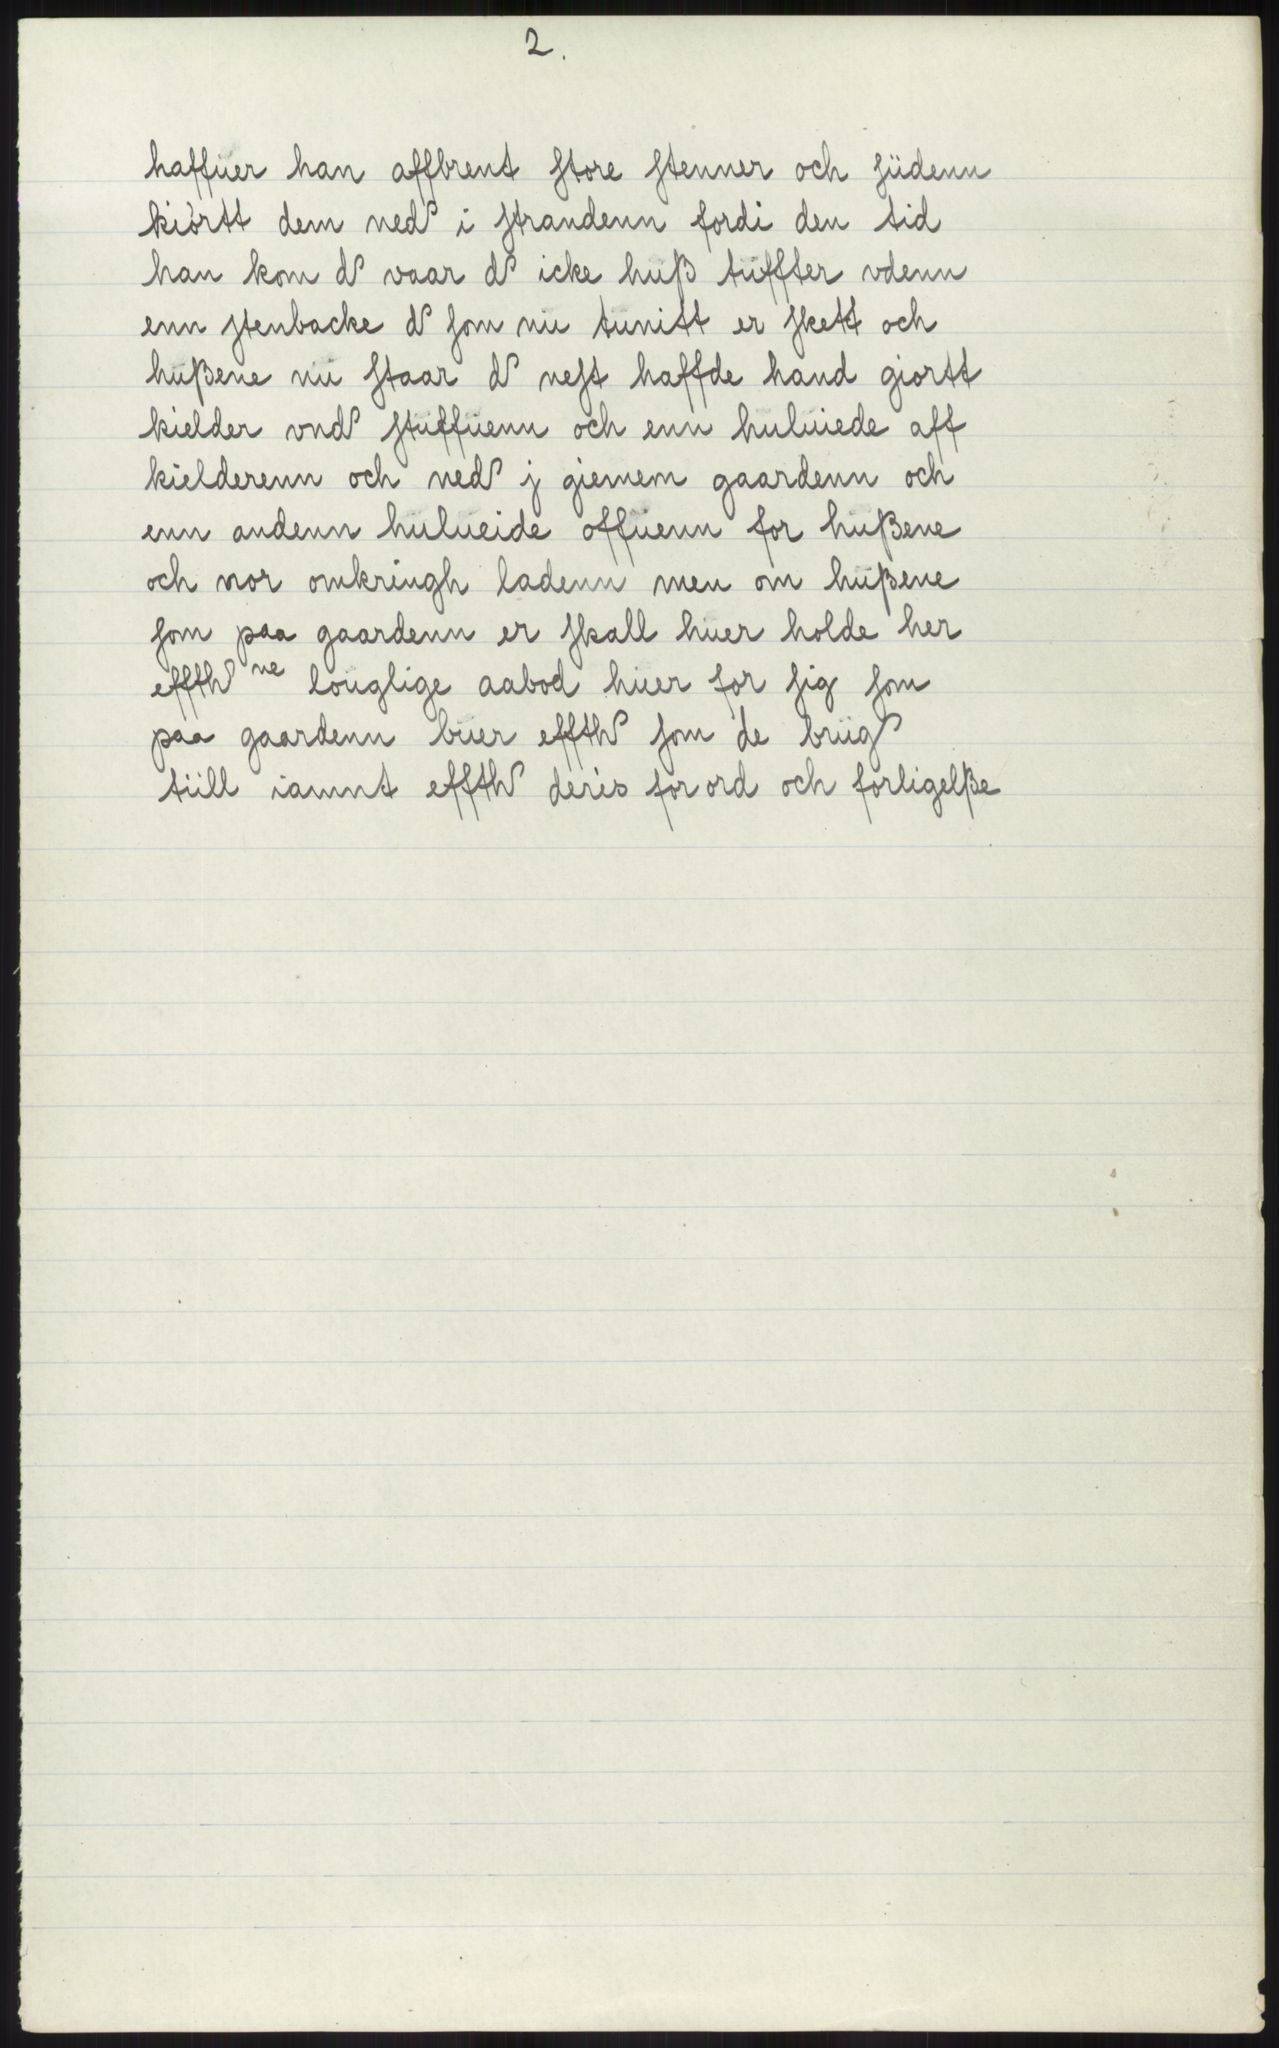 2.
haffuer han affbrent store stenner och südenn
kiörtt dem ned i strandenn fordi den tid
han kom d vaar d icke huß tüffter vdenn
enn stenbacke d som nü tünitt er skett och
hüßene nü staar d nest haffde hand giortt
kielder vnd stüffüenn och enn hulüiede aff
kielderenn och ned j giemem gaardenn och
enn andenn hülueide offüenn for hüßene
och nor omkringh ladenn men om hüßene
som paa gaardenn er skall huer holde her
effth ne löuglige aabod hüer for sig som
paa gaardenn büer effth som de brüg
tüll iamnt effth deris for ord och forligelße